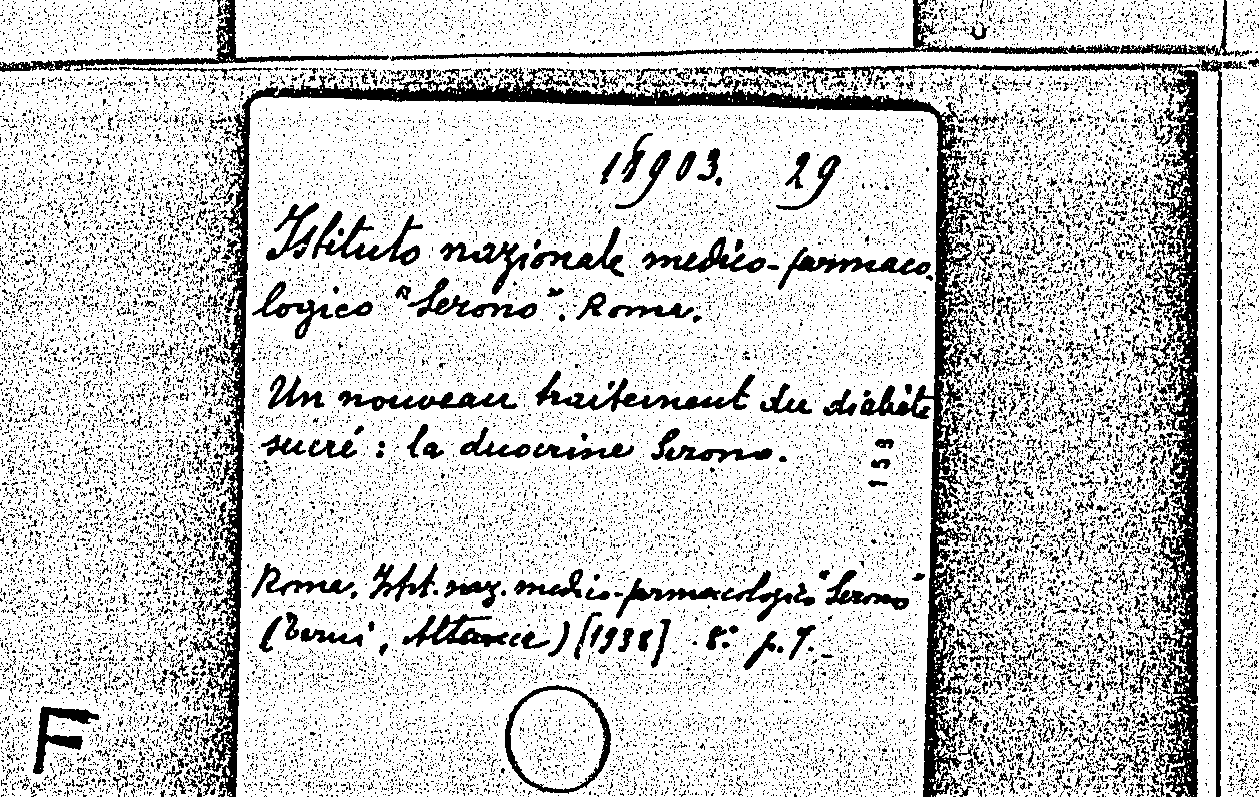 18903. 29
Istituto nazionale medico-farmaco.
logico "Serono". Roma.
Un nouveau traitement du diabète
sucré : la ducrine Serono.
153
Roma, Istit. naz. medico-farmacologico "Serono"
(Terni, Alterocca) [1938] 8° p. 7.
F